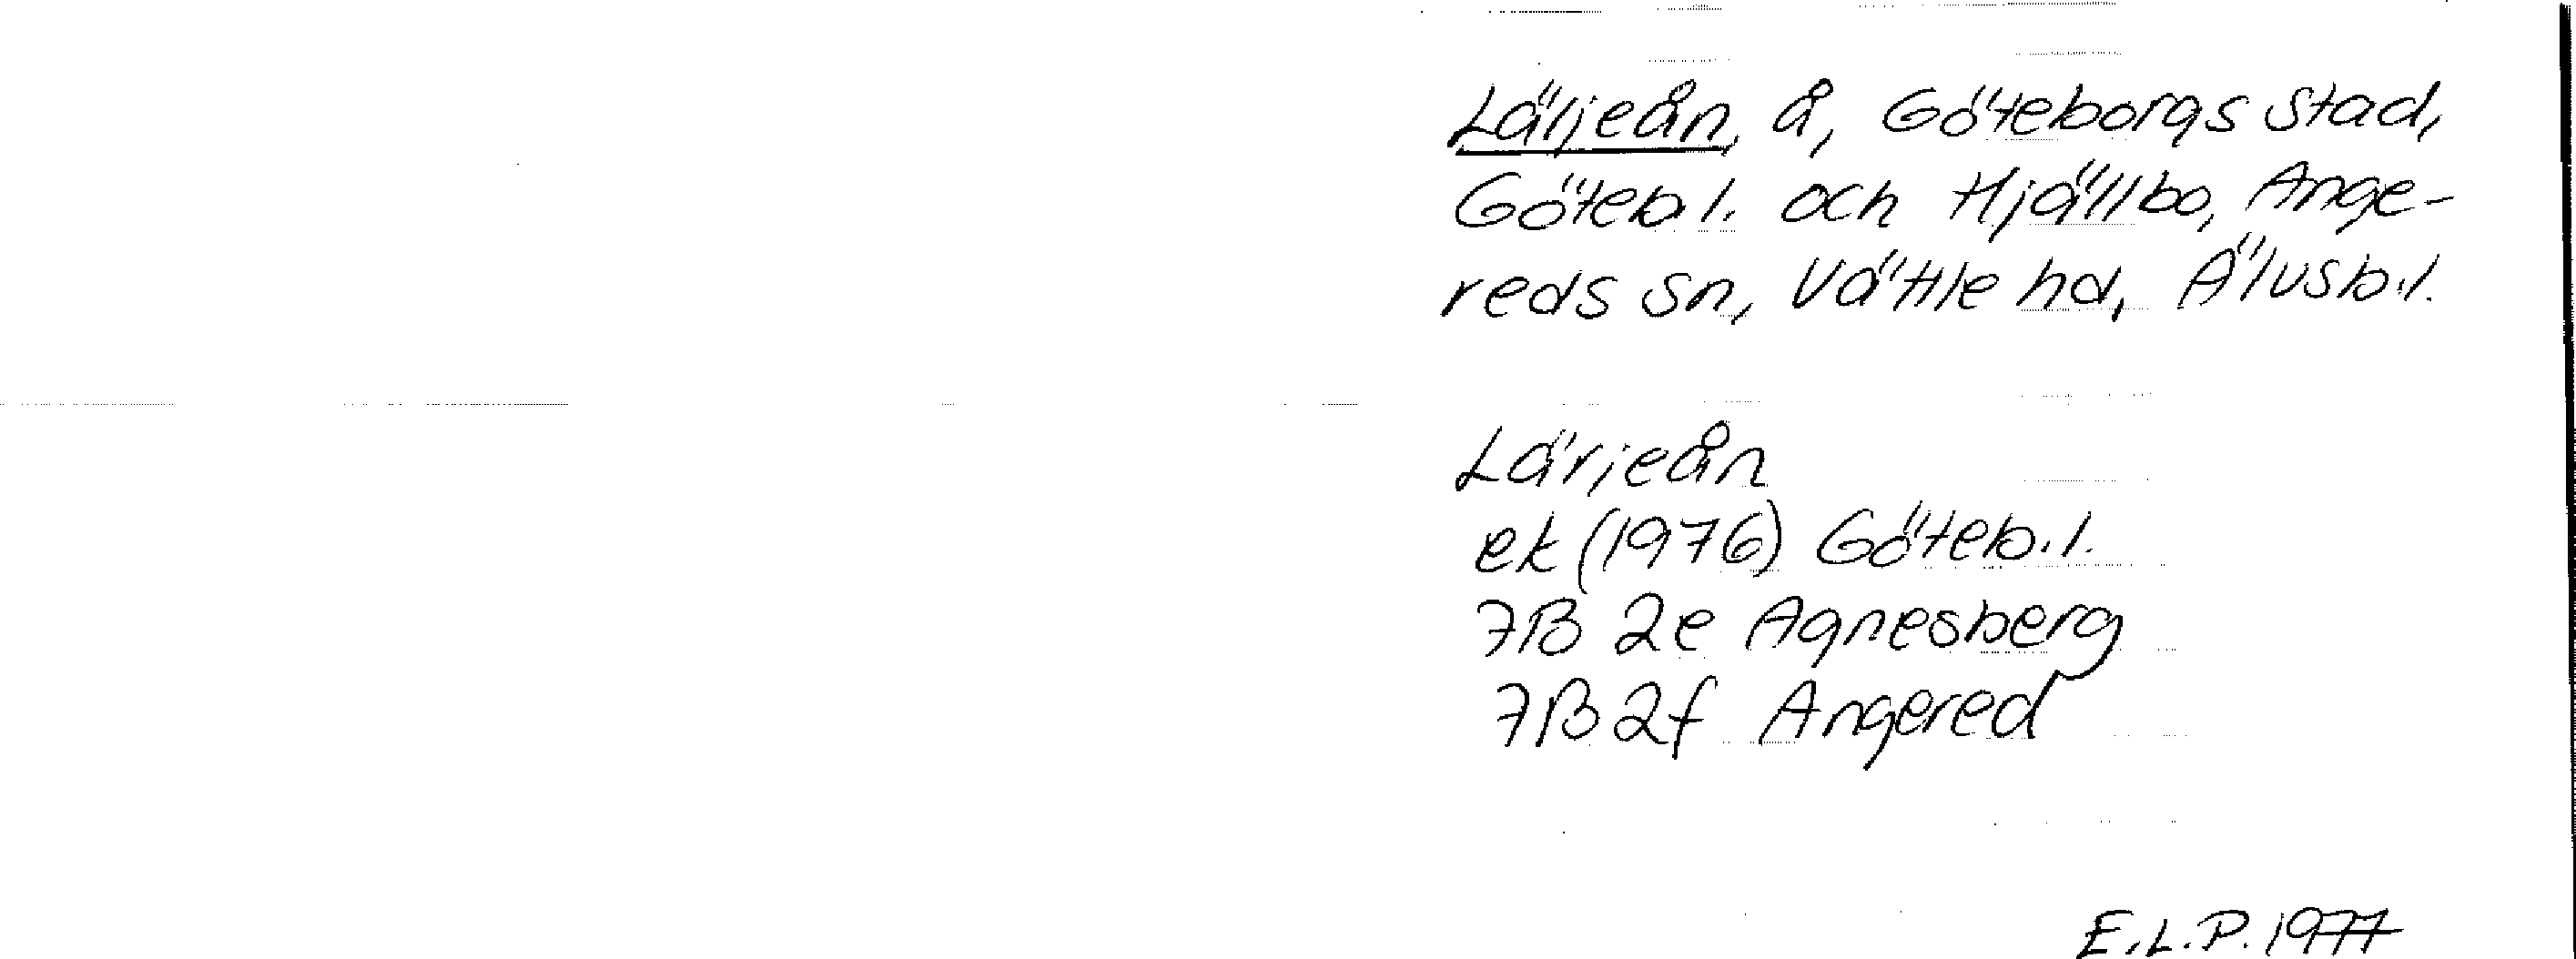 Lärjeån, å, Göteborgs stad,
Göteb.l. och Hjällbo, Ange-
reds sn, Vättle hd, Älvsb.l.
Lärjeån
ek (1976) Göteb.l.
7B 2e Agnesberg
7B 2f Angered
E.L.P. 1977